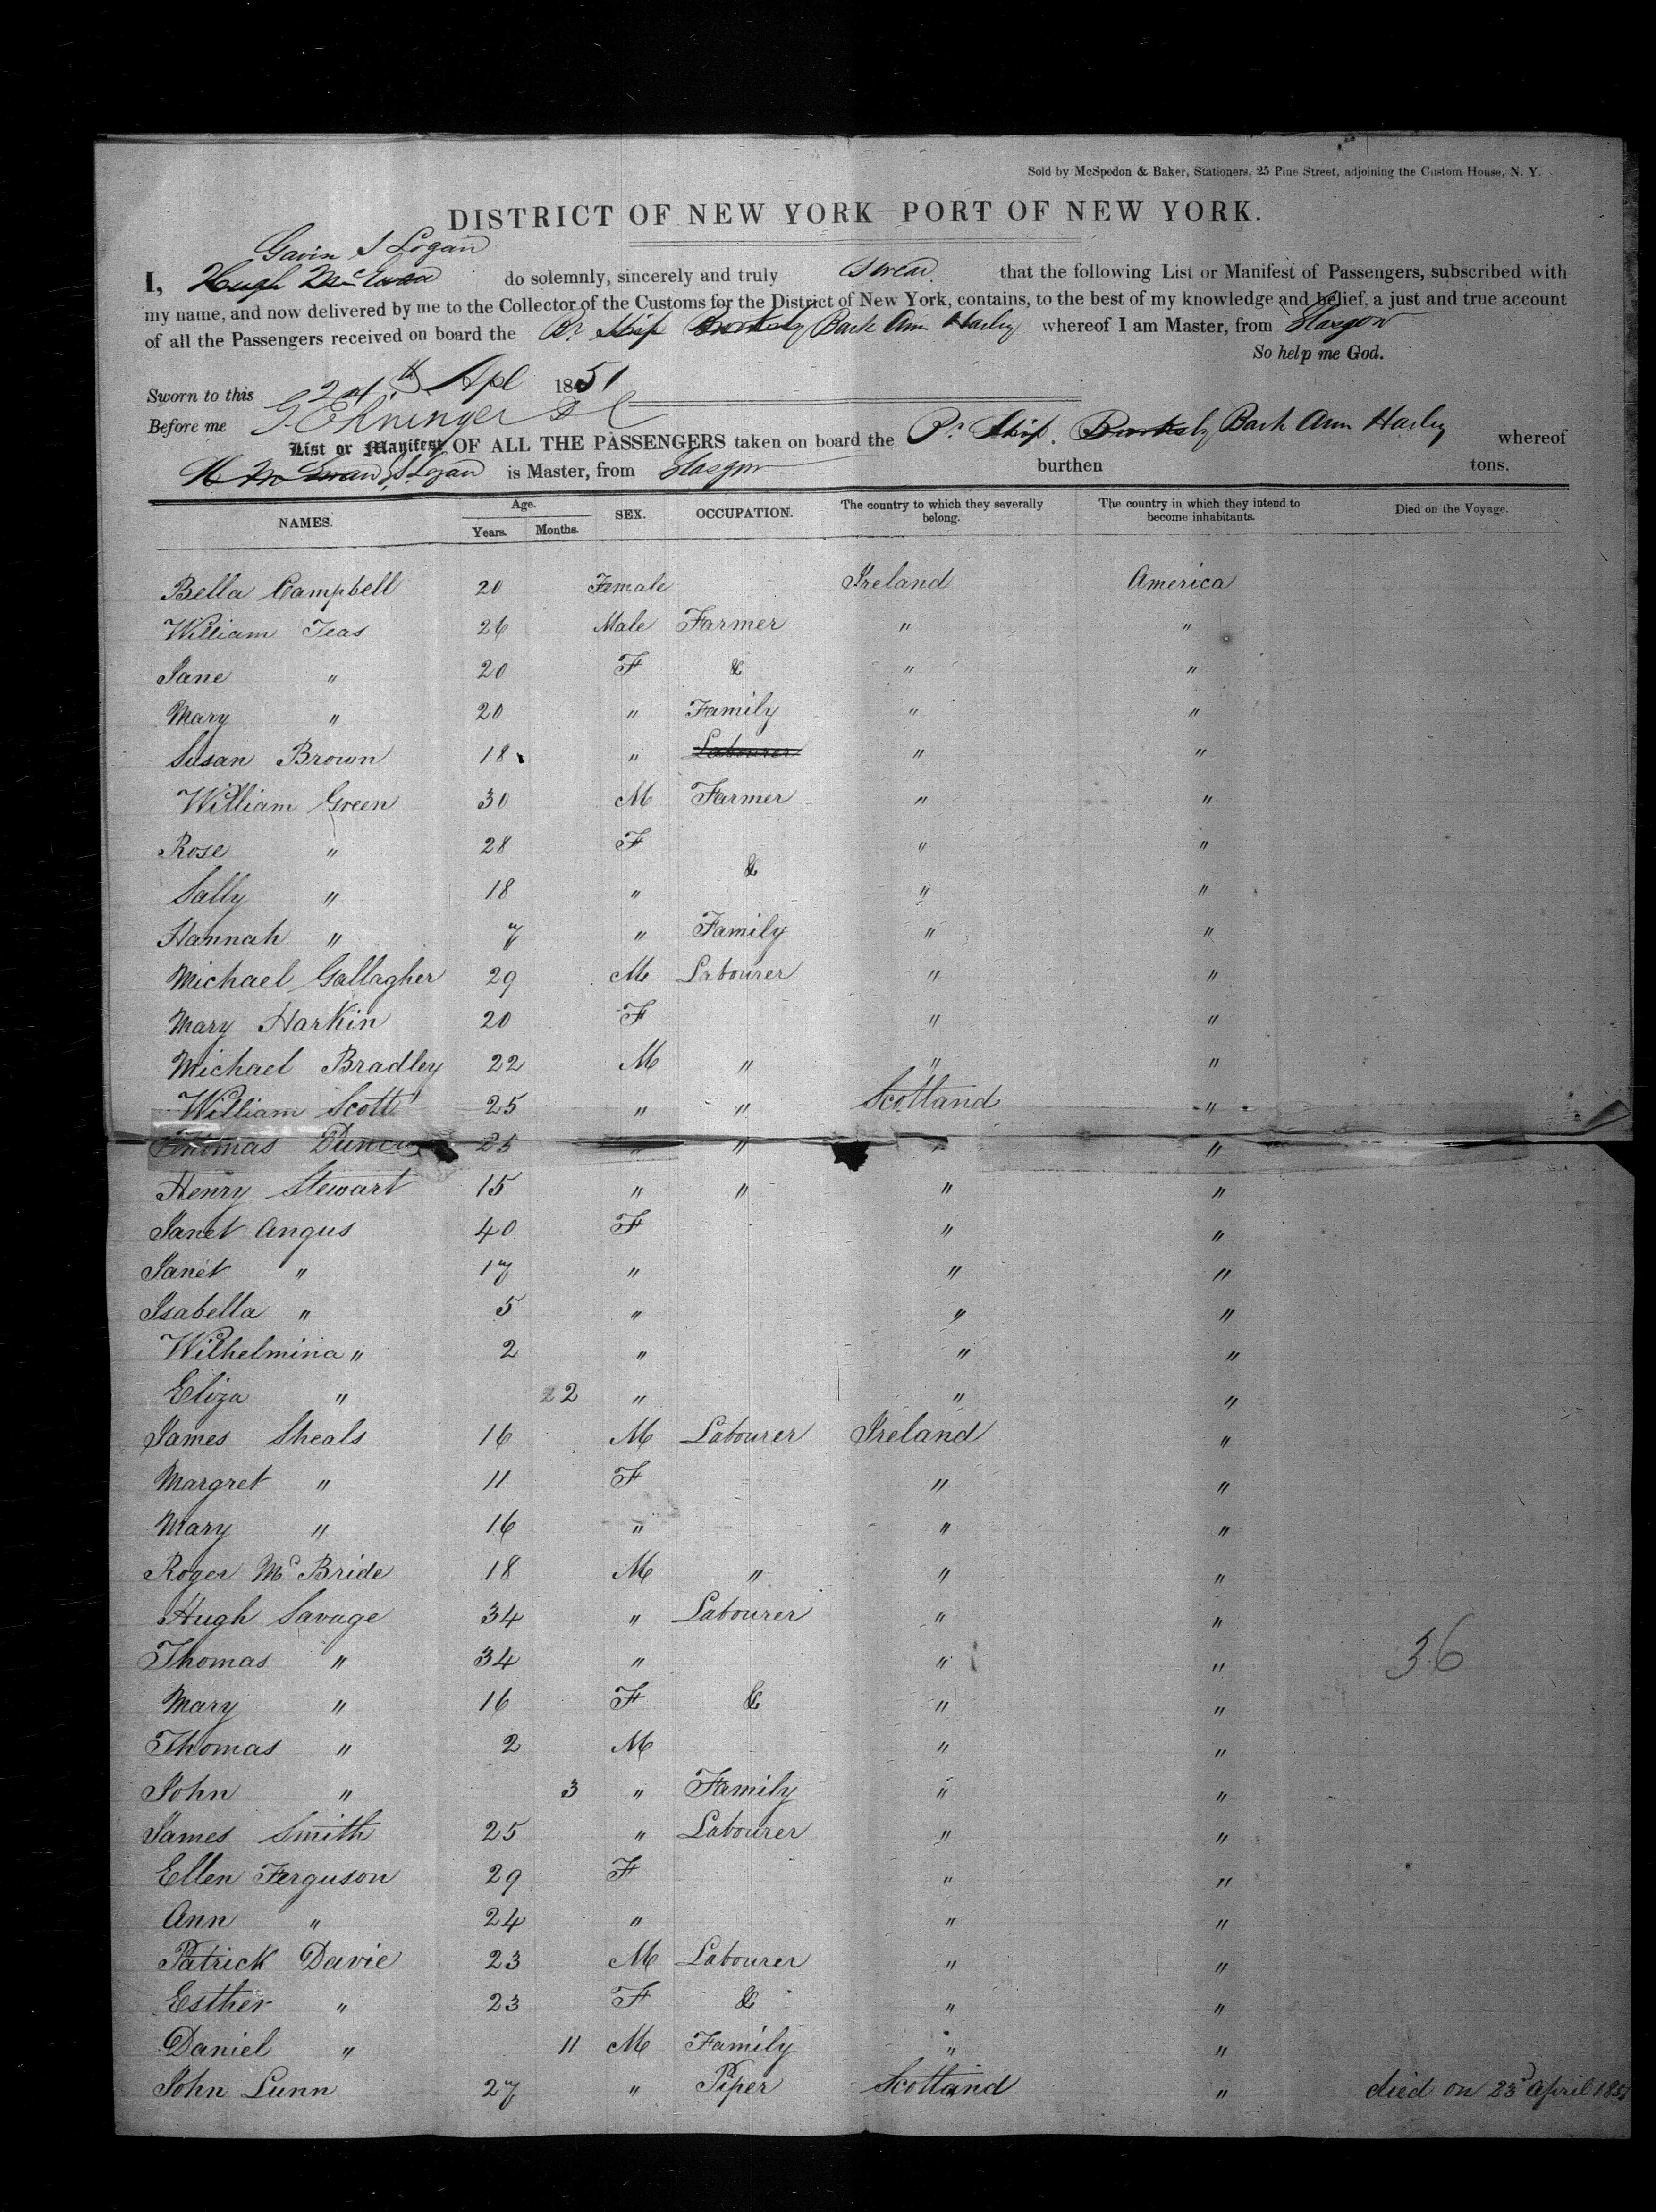 Sold by McSpedon & Baker, Stationers, 25 Pine Street, adjoining the Custom House, N. Y.
DISTRICT OF NEW YORK—PORT OF NEW YORK.
Gavin S Logan
I, Hugh McEwen do solemnly, sincerely and truly swear that the following List or Manifest of Passengers, subscribed with
my name, and now delivered by me to the Collector of the Customs for the District of New York, contains, to the best of my knowledge and belief, a just and true account
of all the Passengers received on board the Br Ship Bark Ann Harley whereof I am Master, from Glasgow
So help me God.
Sworn to this 24th Apl 1851
Before me
List or Manifest OF ALL THE PASSENGERS taken on board the Br Ship Bark Ann Harley whereof
Logan is Master, from Glasgow burthen tons.
NAMES. Age. Years. Months. SEX. OCCUPATION. The country to which they severally belong. The country in which they intend to become inhabitants. Died on the Voyage.
Bella Campbell 20 Female Ireland America
William Teas 26 Male Farmer " "
Jane " 20 F & " "
Mary " 20 " Family " "
Susan Brown 18 " Labourer " "
William Green 30 M Farmer " "
Rose " 28 F " "
&
Sally " 18 " " "
Hannah " 7 " Family " "
Michael Gallagher 29 M Labourer " "
Mary Harkin 20 F " "
Michael Bradley 22 M " " "
William Scott 25 " " Scotland "
Thomas 25 " " " "
Henry Stewart 15 " " " "
Janet Angus 40 F " "
Janet " 17 " " "
Isabella " 5 " " "
Wilhelmina " 2 " " "
Eliza " 22 " " "
James Sheals 16 M Labourer Ireland "
Margret " 11 F " "
Mary " 16 " " "
Roger McBride 18 M " " "
Hugh Savage 34 " Labourer " "
Thomas " 34 " " " 36
Mary " 16 F & " "
Thomas " 2 M " "
John " 3 " Family " "
James Smith 25 " Labourer " "
Ellen Ferguson 29 F " "
Ann " 24 " " "
Patrick Davie 23 M Labourer " "
Esther " 23 F & " "
Daniel " 11 M Family " "
John Lunn 27 " Piper Scotland " died on 23d April 1851